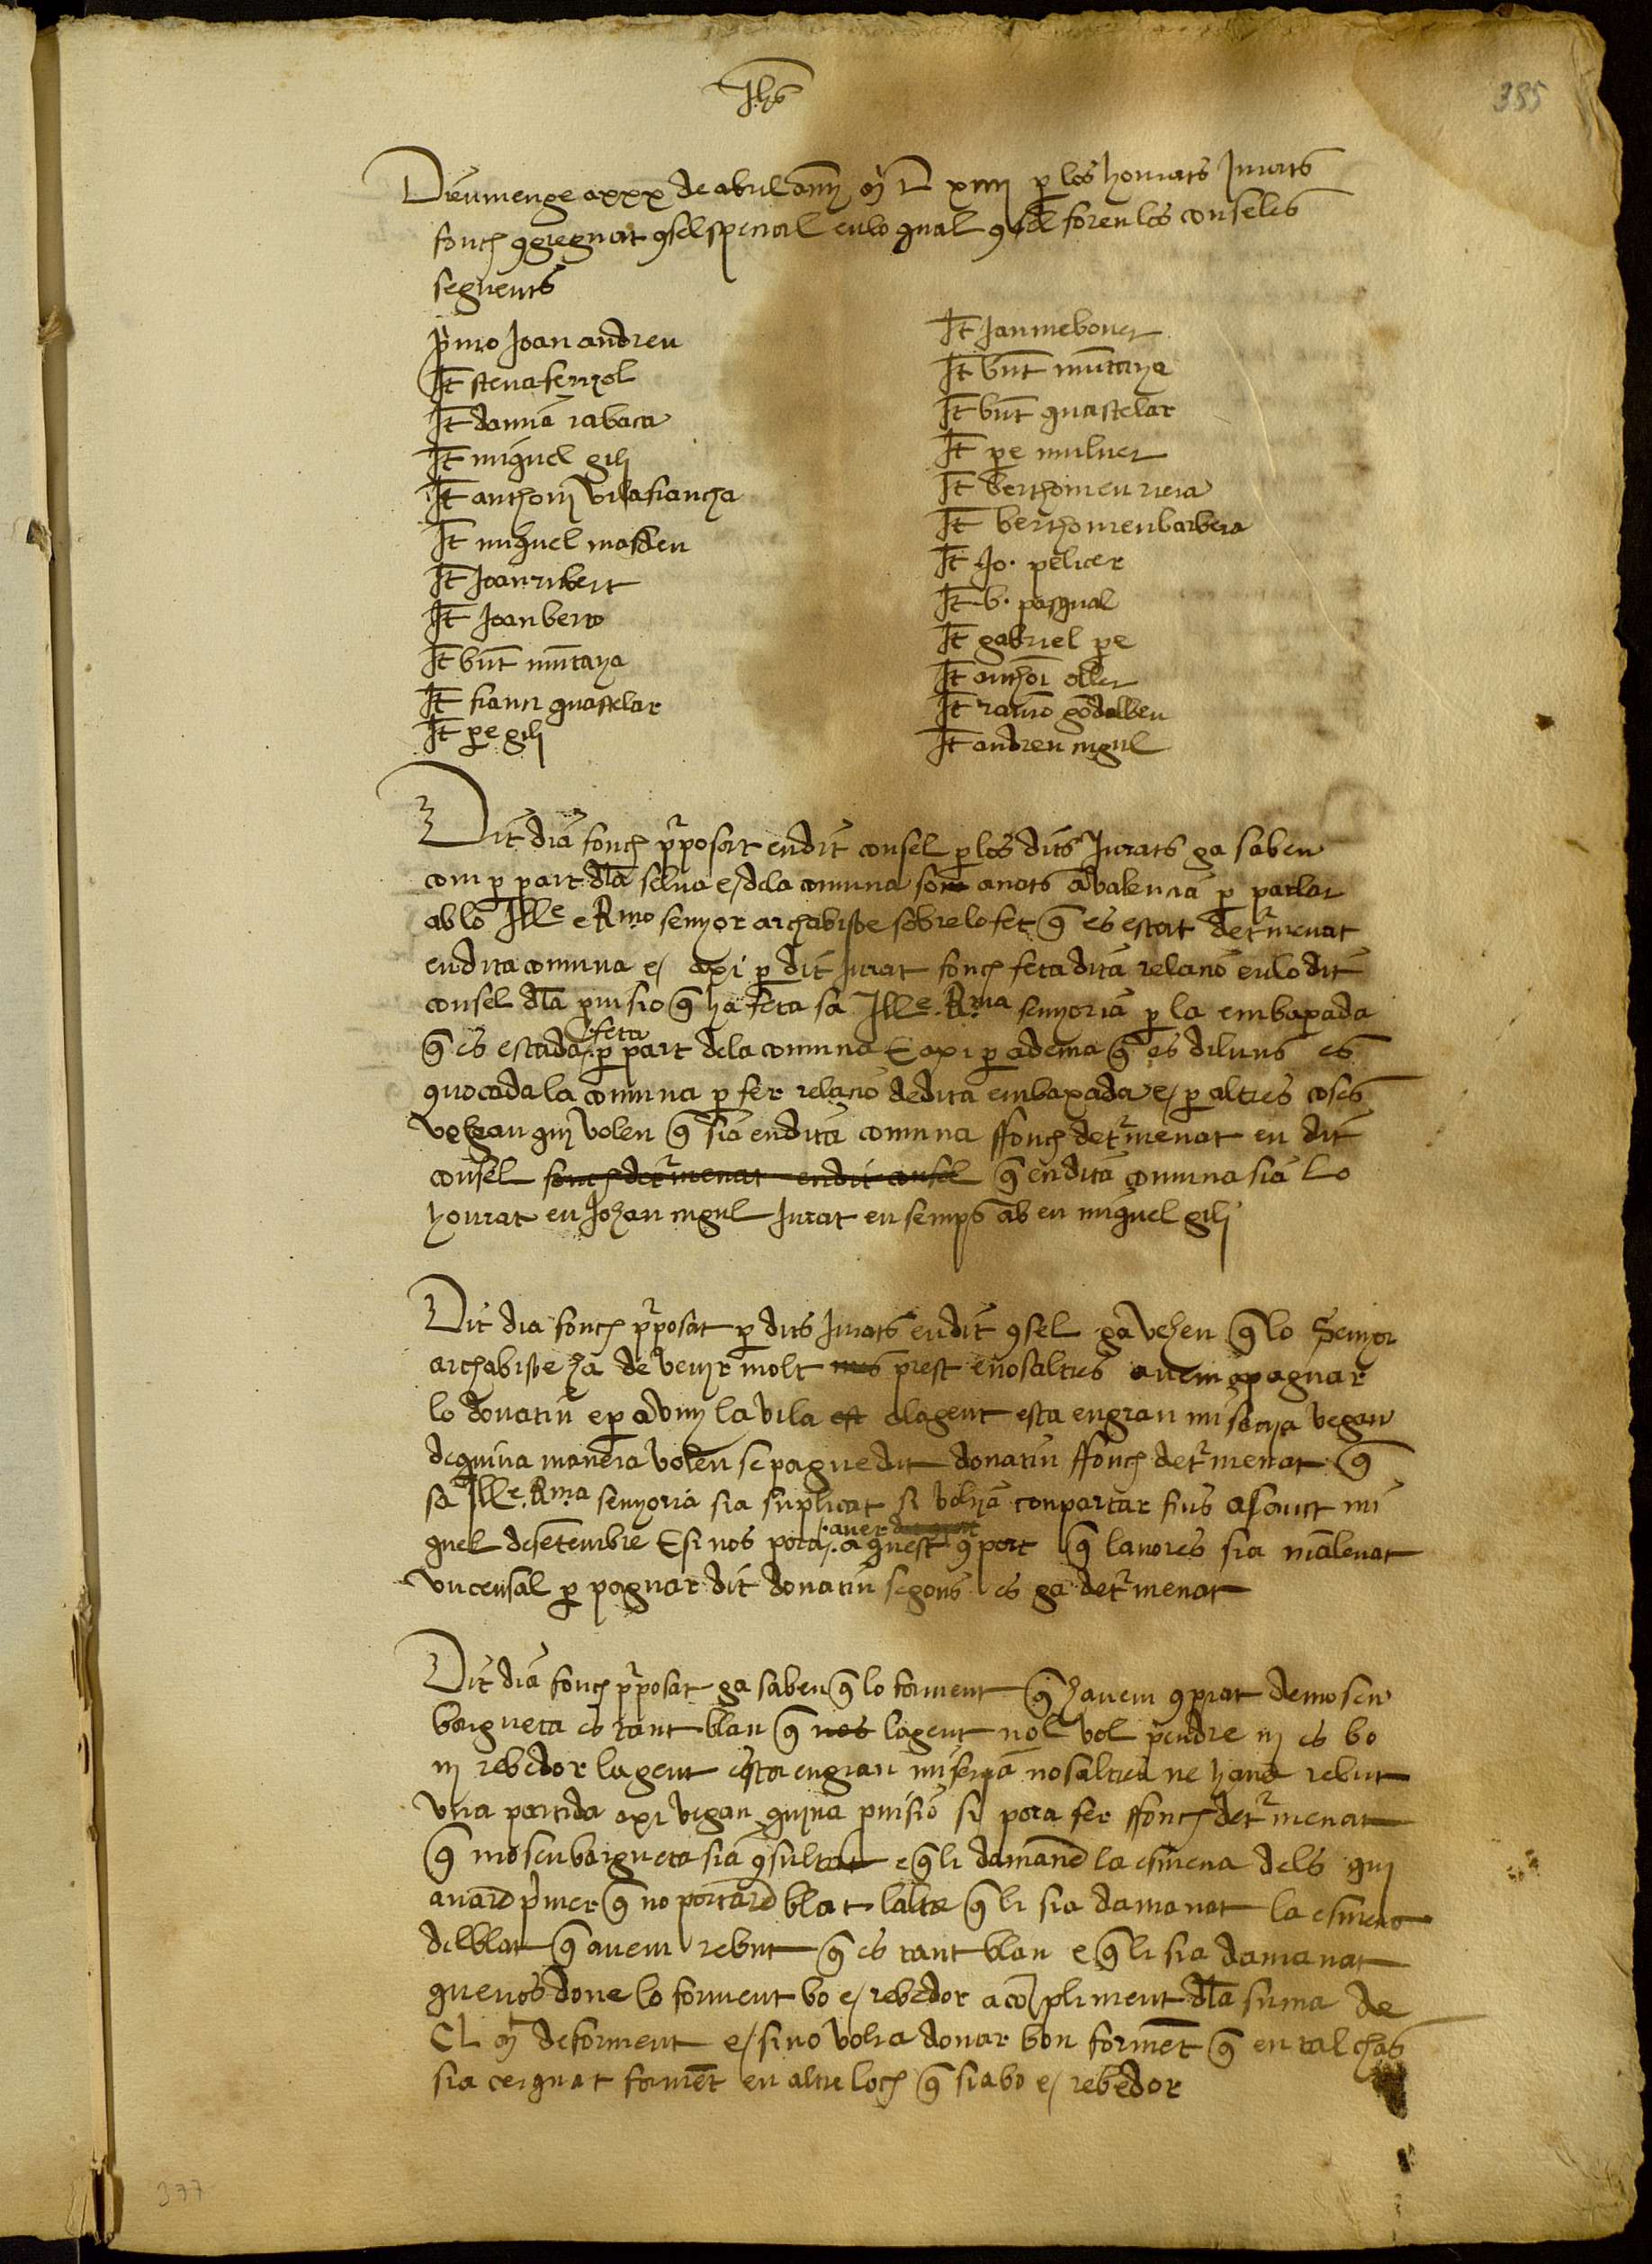 Jhs
385
Diumenge a xxx de abril any M D xiiii per los honrats Jurats
fonch 9gregat 9sel special en lo qual 9sel foren los conselés
seguents
primo Joan andreu
It steva ferrol
It damia rabaca
It miguel gili
It anthoni vilafrancha
It miguel masdeu
It Joan ribert
It Joan berto
It bnt mūtaya
It francí guastelar
It pe gili
It Jaume bover
It bnt mūtaya
It bnt guastelar
It pe muluer
It berthomeu riera
It berthomeu barbera
It Jo. pelicer
It b. pasqual
It gabriel pe
It anthoi oller
It ramo godalbeu
It andreu ingul
Dit dia fonch pposat en dit consel p los dits Jurats ja saben
com p part dla selva e dela comuna som anats a valencia p parlar
ab lo Ille e Rmo senyor archabisbe sobre lo fet q es estat detrmenat
en dita comuna e axi p dit Jurat fonch feta dita relacio en lo dit
consel dla pvisio q ha feta sa Ille. Rma senyoria p la embaxada
q es estada feta p part dela comuna E axi p a dema q es diluns es
9vocada la comuna p fer relacio de dita embaxada e p altres coses
vegan qui volen q sia en dita comuna ffonch detrmenat en dit
consel fonch detrmenat en dit consel q en dita comuna sia lo
honrat en Johan ingul Jurat ensemps ab en miguel gili
Dit dia fonch pposat p dits Jurats en dit 9sel ja vehen q lo Senyor
archabisbe ha de venir molt mes prest e nosaltres avem a pagar
lo donatiu e p avuy la vila est e la gent esta en gran miserya vegan
de quina manera volen se pague dit donatiu ffonch detrmenat q
sa Ille. Rma senyoria sia suplicat si volra conportar fins a sanct mi
quel de setembre E si nos pora aver de aquest 9port q lavores sia malevat
un censal p pagar dit donatiu segons es ja detrmenat
Dit dia fonch pposat ja saben q lo forment q havem 9prat de mosen
bargueta es tant blan q nos la gent nol vol pendre ni es bo
ni rebedor la gent esta en gran miseria nosaltres ne havem rebut
una partida axi vegan quina pvisio si pora fer ffonch detrmenat
q mosen bargueta sia 9sultat e q li damanē la esmena dels qui
anarē primer q no portarē blat laltre q li sia damanat la esmena
del blat q avem rebut q es tant blan e q li sia damanat
que nos done lo forment bo e rebedor a cōpliment dla suma de
CL m de forment e si no volra donar bon formēt q en tal chas
sia cerquat formēt en altre loch q sia bo e rebedor
377